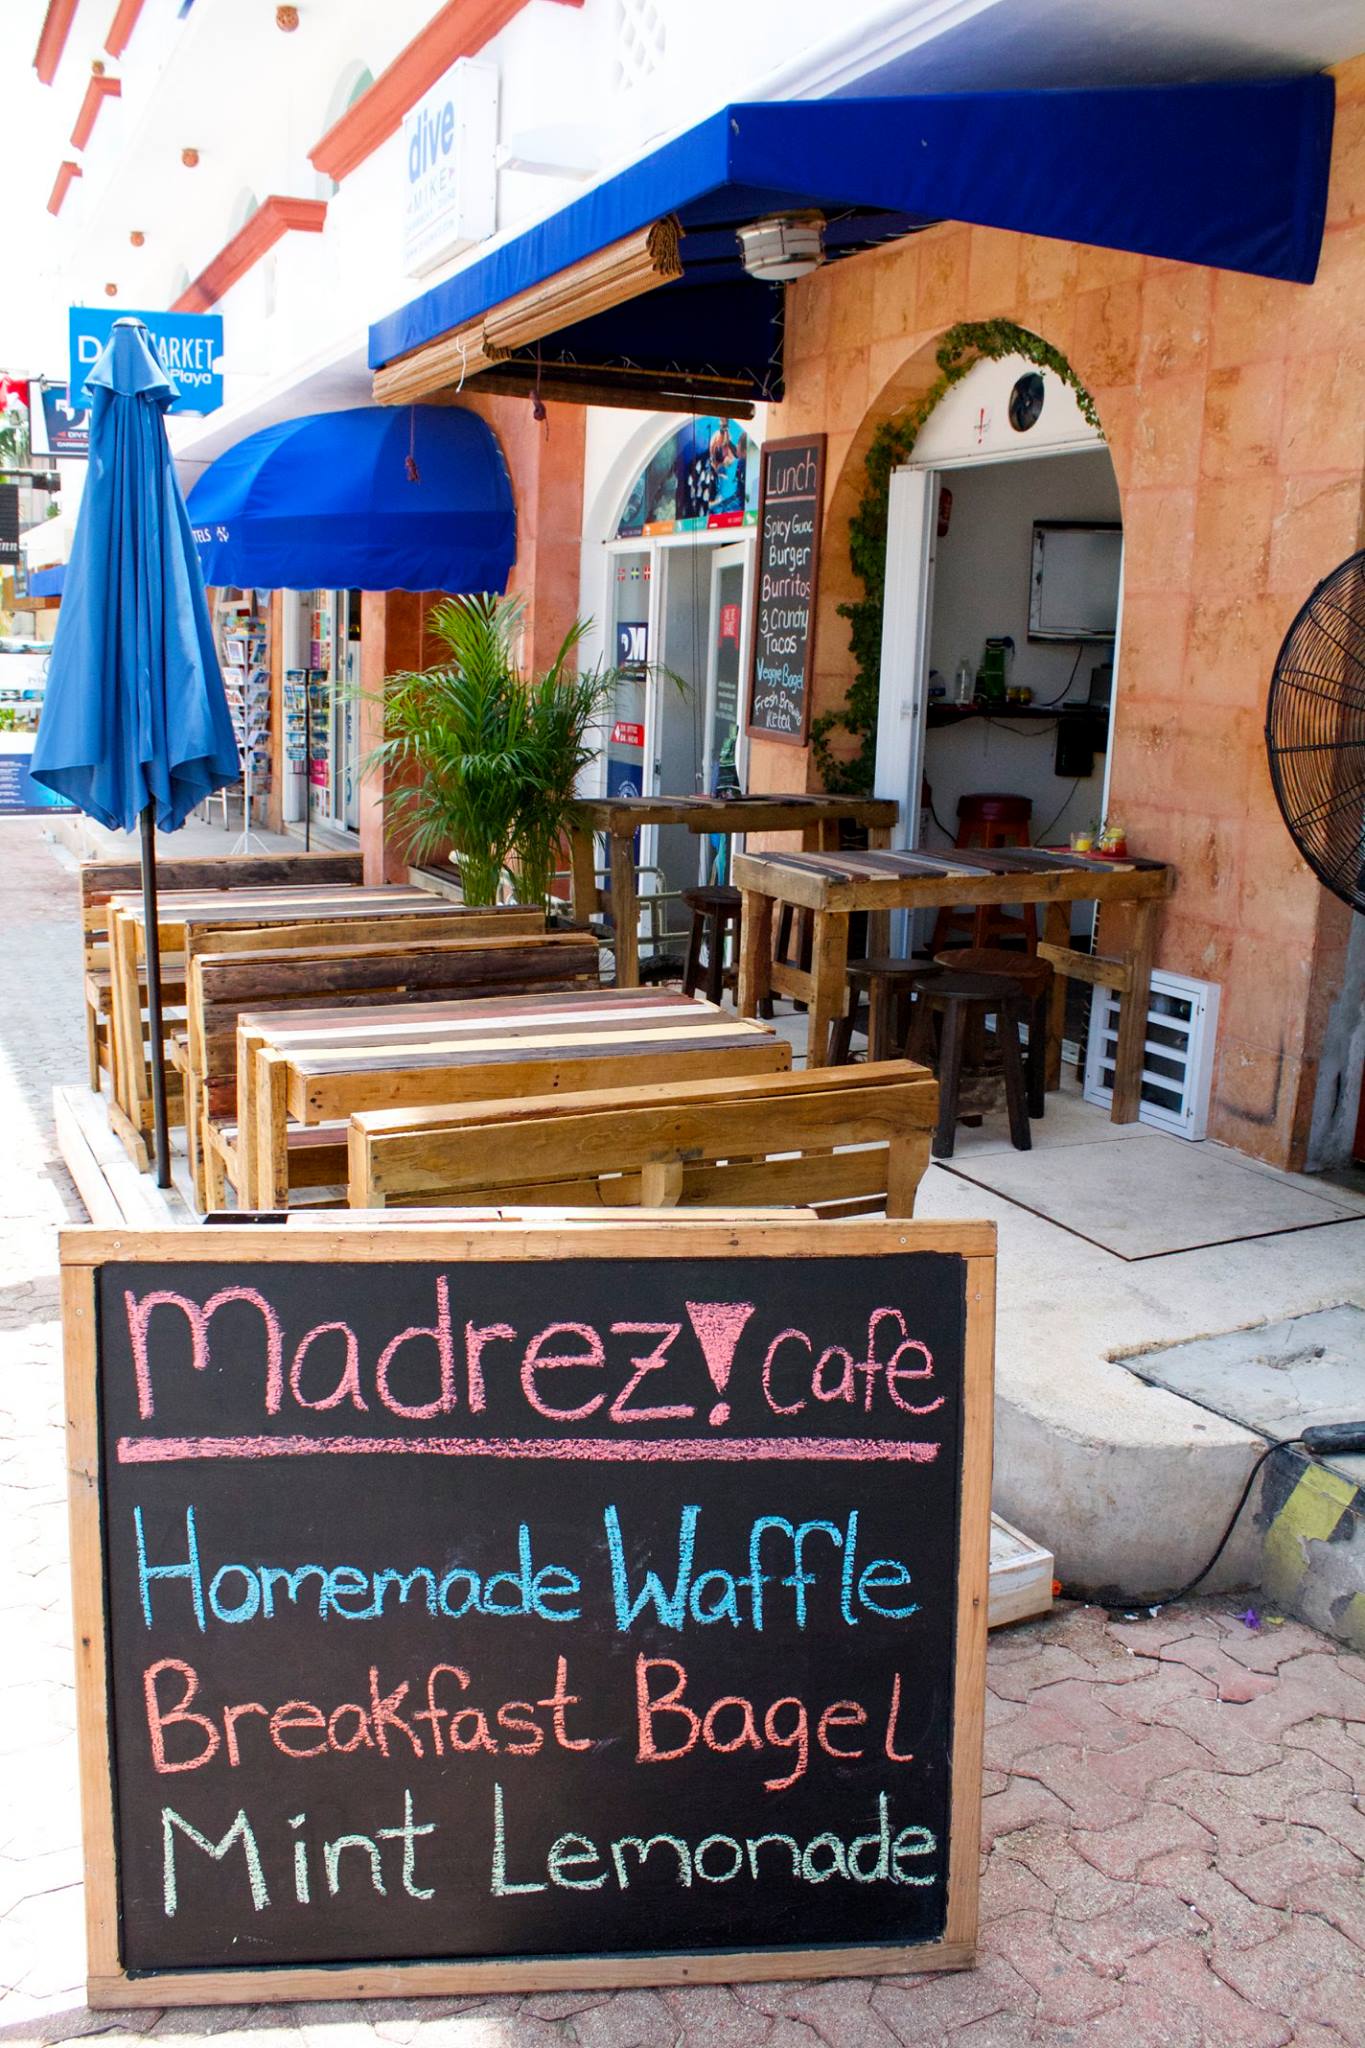 dive
MIKE
MARKET
Playa
DIVE
TELS
Lunch
Spicy Guac
Burger
Burritos
3 Crunchy
Tacos
Veggie Bagel
Fresh Brewed
Icetea
Madrez! Cafe
Homemade Waffle
Breakfast Bagel
Mint Lemonade